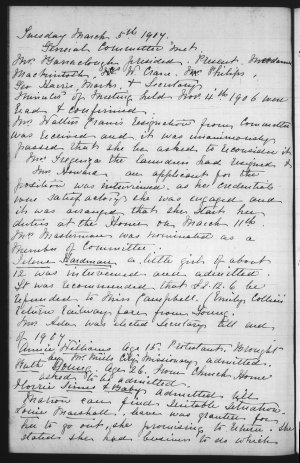 Tuesday March 5th 1907.
General Committee met.
Mrs. Barraclough presided. Present. Mesdames
Mackintosh, W. Crane. Phillips,
Geo Harris Marks, & Secretary
Minutes of Meeting held Nov 4th 1906 were
read & confirmed.
Mrs Walter resignation from Committee
was received and it was unanimously
passed that she be asked to reconsider it.
Mrs the Laundress had resigned &
Mrs Howard an applicant for the
position was interviewed. as her credentials
were satisfactory she was engaged and
it was arranged that she start her
duties at the Home on March 11th
Mr was nominated as a
Member of Committee.
Hardman a little girl of about
12 was interviewed and admitted.
It was recommended that be
refunded to Miss Campbell. (Emily Collins
return railway fare from Young.
Mrs Ada was elected Secretary till end
of 1907.
Annie Williams Age 15. Protestant, brought
by Mr Mills City Missionary admitted.
Ruth Young. Age 26. from Church Home
to be admitted.
Florrie & Baby admitted till
Matron can find suitable situation
Louise Marshall. leave was granted for
her to go out, she promising to return. She
stated she had business to do which